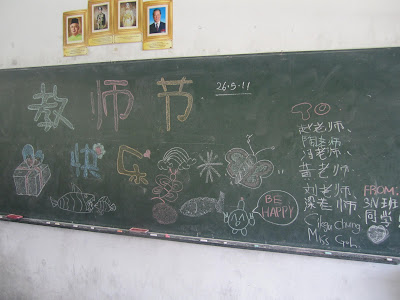 教师节
快乐
26.5.11
BE
HAPPY
TO
赵老师、
陶老师
冯老师、
黄老师、
刘老师、
梁老师、
Chung
Miss Goh
FROM:
3N班
同学!